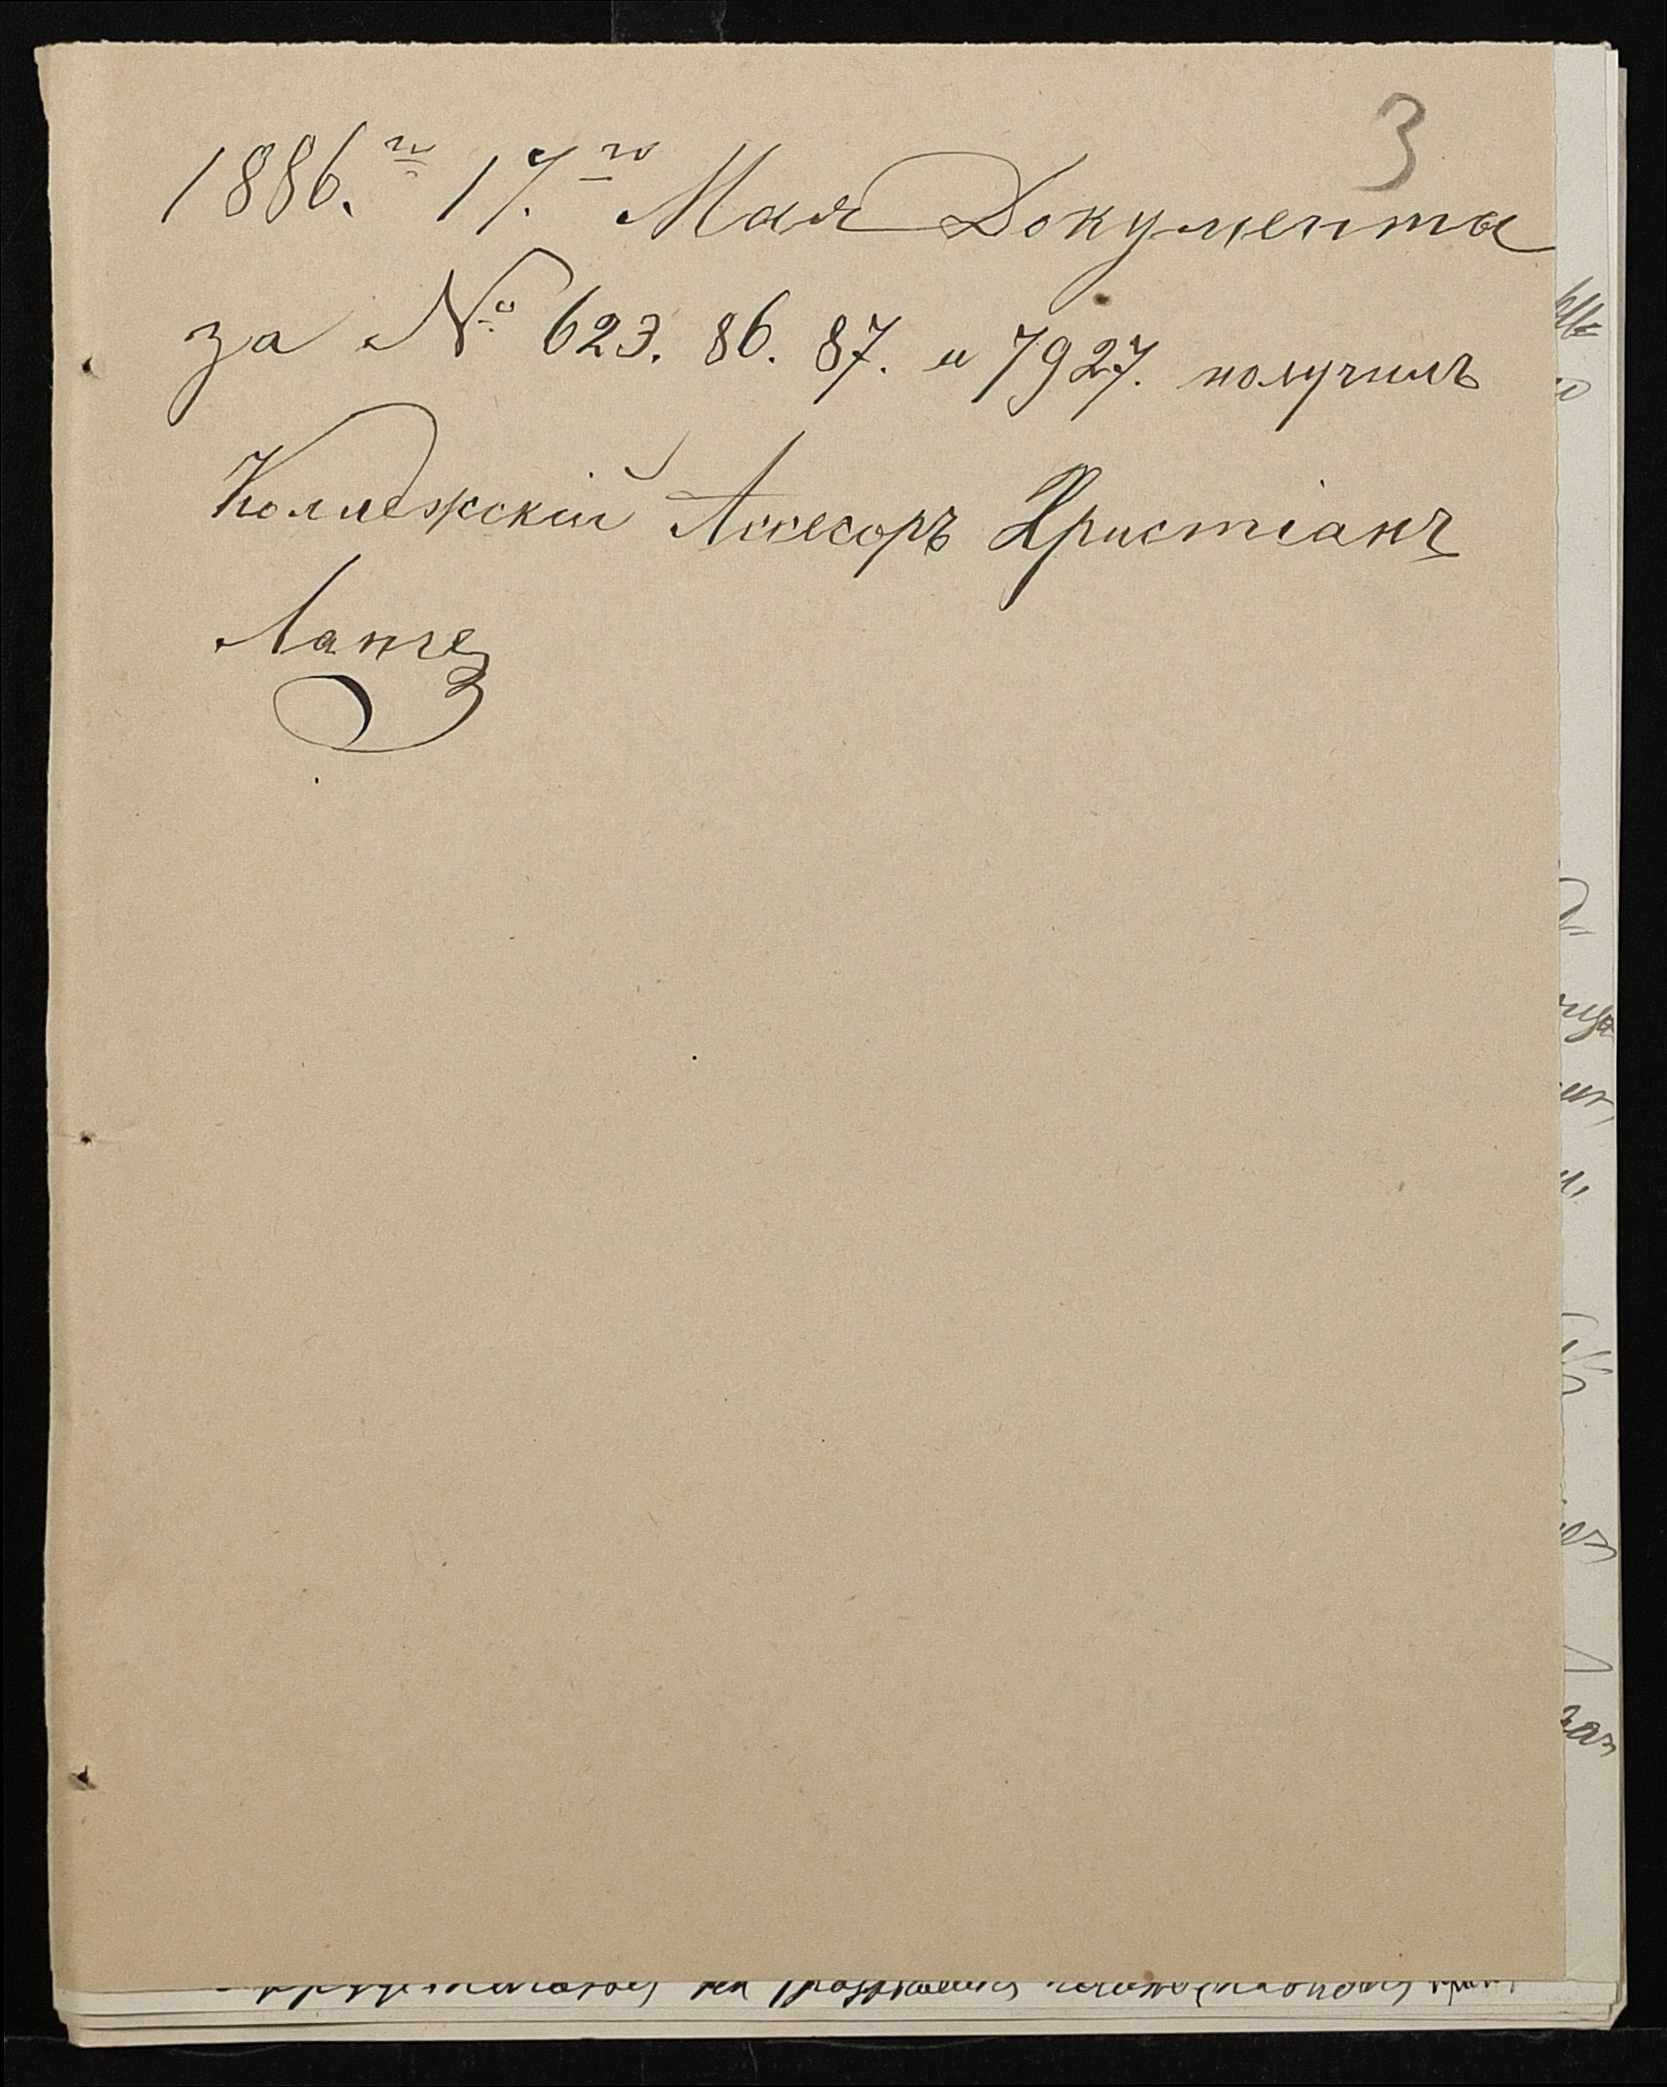 3
1886.го 17.го Мая Документы
за № 623. 86. 87. и 7927. получилъ
Коллежскій Ассесоръ Христіанъ
Ланге